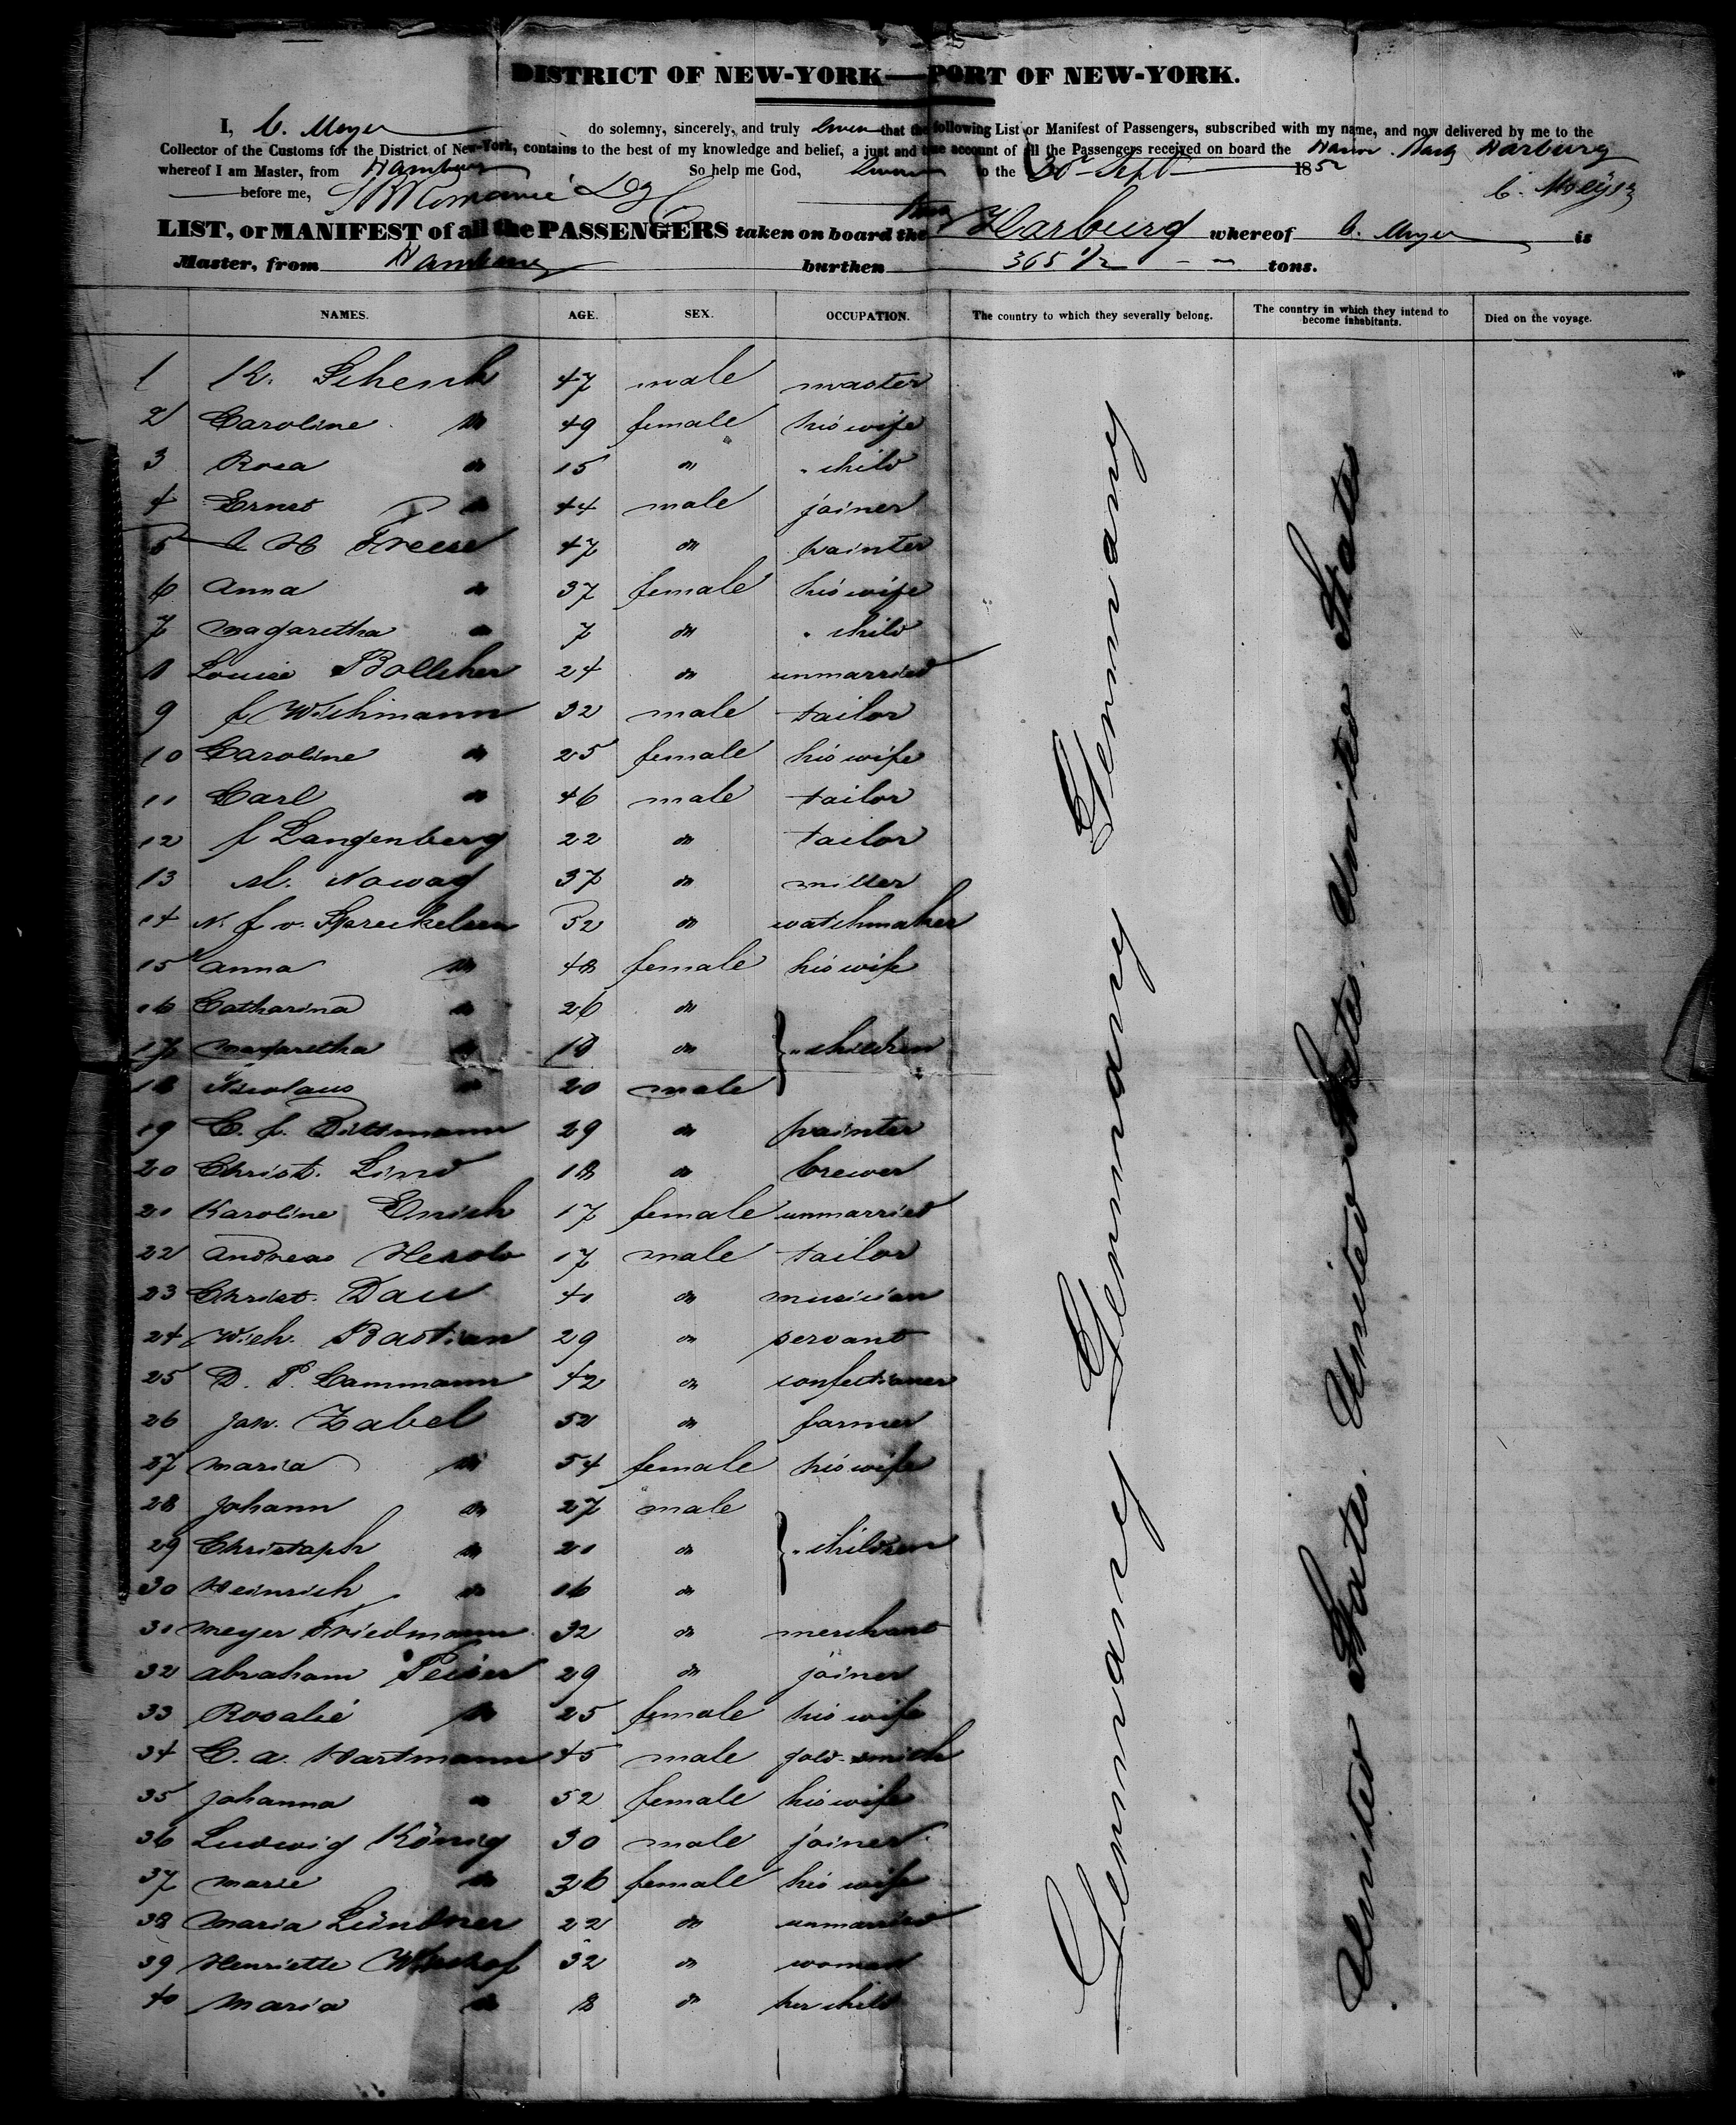 DISTRICT OF NEW-YORK—PORT OF NEW-YORK.
I, C. Meyer do solemny, sincerely, and truly swear that the following List or Manifest of Passengers, subscribed with my name, and now delivered by me to the
Collector of the Customs for the District of New-York, contains to the best of my knowledge and belief, a just and true account of all the Passengers received on board the Hanov. Bark Harburg
whereof I am Master, from Hamburg So help me God, Sworn to the 30 Sept 1852
before me, C. Meyer
LIST, or MANIFEST of all the PASSENGERS taken on board the Bark Harburg whereof C. Meyer is
Master, from Hamburg burthen 365 1/2 tons.
NAMES. AGE. SEX. OCCUPATION. The country to which they severally belong. The country in which they intend to become inhabitants. Died on the voyage.
1 K. Schenk 47 male master
2 Caroline " 49 female his wife
3 Rosa " 15 " " child
4 Ernst " 44 male joiner
5 H Freese 47 " painter
6 Anna " 37 female his wife
7 Magaretha " 7 " " child
8 Louise Bollcher 24 " unmarried
9 f Wichmann 32 male tailor
10 Caroline " 25 female his wife
11 Carl " 46 male tailor
12 f Langenberg 22 " tailor
13 M. Nowag 37 " miller
14 N. f v. Spreckelsen 52 " watchmaker
15 Anna " 48 female his wife
16 Catharina " 26 "
17 Magaretha " 18 " " children
18 Nicolaus " 20 male
19 C. f. Dittmann 29 " painter
20 Christ. Lind 18 " brewer
21 Karoline Emich 17 female unmarried
22 Andreas Herold 17 male tailor
23 Christ. Dau 41 " musician
24 Wich. Bastian 29 " servant
25 D. P. Cammann 42 " confectioner
26 Joh. Zabel 52 " farmer
27 Maria " 54 female his wife
28 Johann " 27 male
29 Christoph " 21 " " children
30 Heinrich " 16 "
31 Meyer Friedmann 32 " merchant
32 Abraham Peiser 29 " joiner
33 Rosalié " 25 female his wife
34 C. A. Hartmann 45 male gold-smith
35 Johanna " 52 female his wife
36 Ludwig König 30 male joiner
37 Marie " 36 female his wife
38 Maria Lündner 22 " unmarried
39 Henriette 32 " woman
40 Maria " 8 " her child
Germany Germany Germany Germany
United States. United States. United States. United States